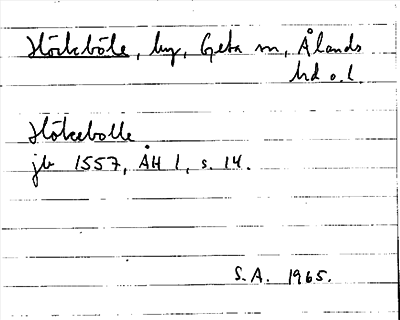 Höckböle, by, Geta sn, Ålands
hd o.l.
Hökebolle
jb 1557, ÅH 1, s. 14.
S.A. 1965.